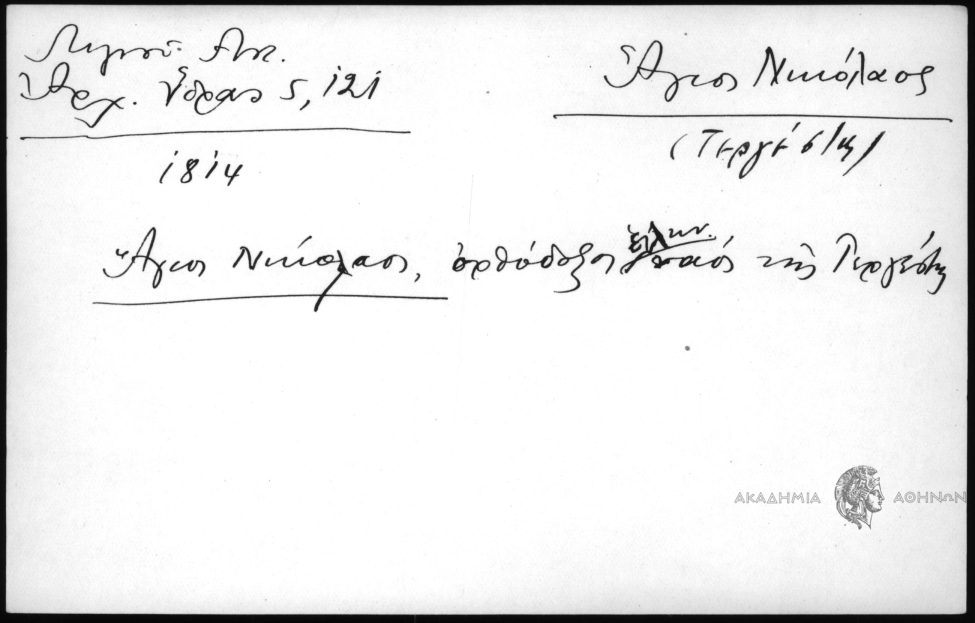 Λιγνού Αντ.
Ἀρχ. Ὕδρας 5, 121
1814
Ἅγιος Νικόλαος
(Τεργέστη)
Ἅγιος Νικόλαος, ὀρθόδοξος ἑλλην. ναός τῆς Τεργέστης
ΑΚΑΔΗΜΙΑ ΑΘΗΝΩΝ